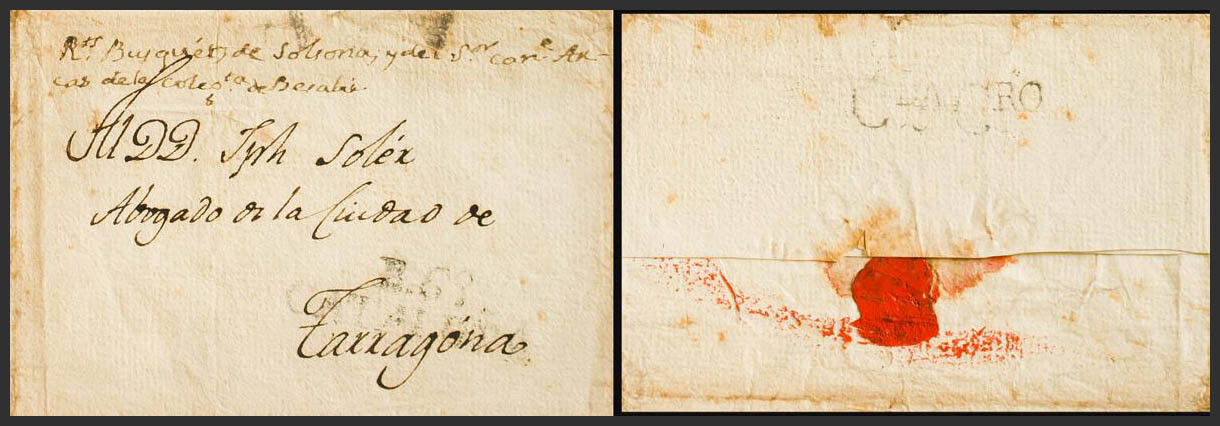 R.ts Busquéts de Solsona, y del S.or can.e Ar-
cas de la Coleg.ta de Besalú.
Al DD. Jph Solér
Abogado de la Ciudad de
Tarragóna